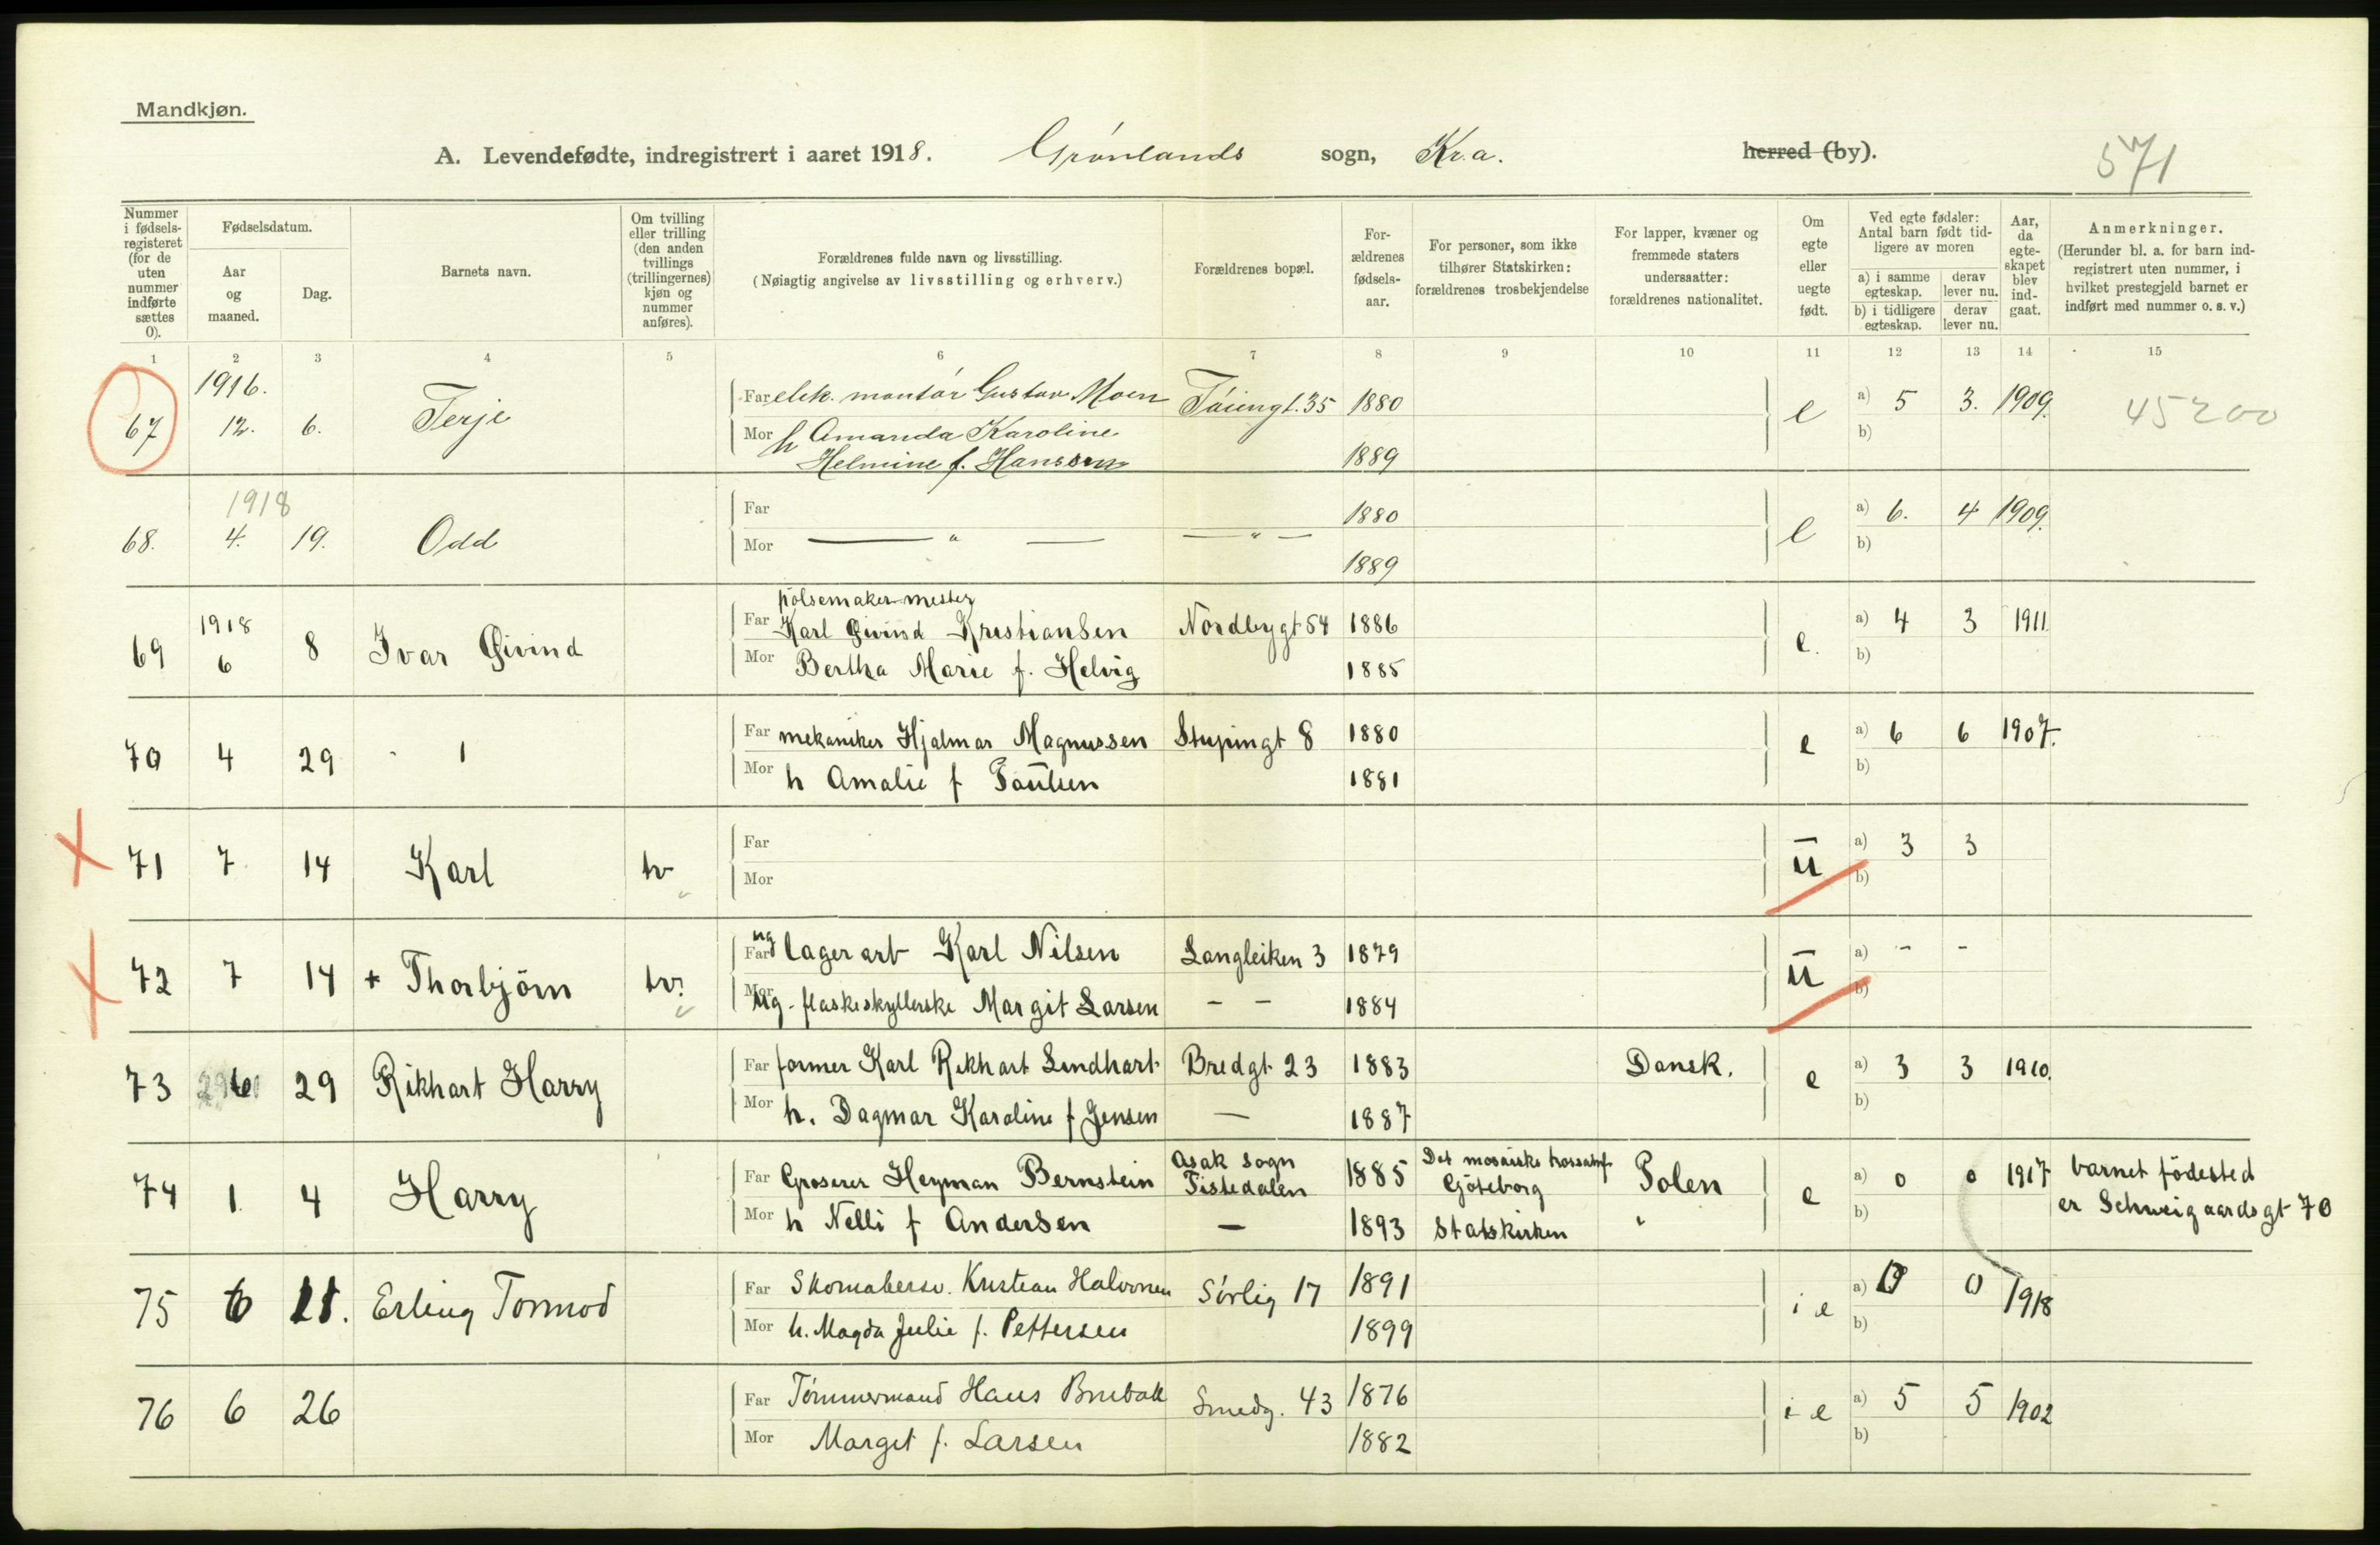 Mandkjøn.
A. Levendefødte, indregistrert i aaret 1918. Grønlands sogn, Kr.a. herred (by).
571
Nummer i fødsels-registeret (for de uten nummer indførte sættes 0).
Fødselsdatum.
Aar og maaned.
Dag.
Barnets navn.
Om tvilling eller trilling (den anden tvillings (trillingernes) kjøn og nummer anføres).
Forældrenes fulde navn og livsstilling.
(Nøiagtig angivelse av livsstilling og erhverv.)
Forældrenes bopæl.
For-ældrenes fødsels-aar.
For personer, som ikke tilhører Statskirken: forældrenes trosbekjendelse
For lapper, kvæner og fremmede staters undersaatter: forældrenes nationalitet.
Om egte eller uegte født.
Ved egte fødsler: Antal barn født tid-ligere av moren
a) i samme egteskap.
derav lever nu.
b) i tidligere egteskap.
derav lever nu.
Aar, da egte-skapet blev ind-gaat.
Anmerkninger.
(Herunder bl. a. for barn ind-registrert uten nummer, i hvilket prestegjeld barnet er indført med nummer o. s. v.)
1 2 3 4 5 6 7 8 9 10 11 12 13 14 15
67 1916. 12. 6. Terje Far elek. montør Gustav Moen Tøiengt. 35 1880 e a) 5 3. 1909. 45200
Mor h Amanda Karoline b)
Helmine f. Hanssen 1889
68. 1918 4. 19. Odd Far 1880 e a) 6. 4 1909.
Mor — " — — " — b)
1889
pølsemakermester
69 1918 6 8 Ivar Øivind Far Karl Øivind Kristiansen Nordbygt 54 1886 e. a) 4 3 1911
Mor Bertha Marie f. Helvig 1885 b)
70 4 29 1 Far mekaniker Hjalmar Magnussen Stupingt 8 1880 e a) 6 6 1907.
Mor h Amalie f Paulsen 1881 b)
71 7 14 Karl tv Far u a) 3 3
Mor b)
72 7 14 + Thorbjörn tv. Far ug lagerarb Karl Nilsen Langleiken 3 1879 u a) - -
Mor Ug. flaskeskyllerske Margit Larsen — — 1884 b)
73 6 29 Rikhart Harry Far former Karl Rikhart Lindhart Bredgt 23 1883 Dansk. e a) 3 3 1910.
Mor h. Dagmar Karoline f Jensen — 1887 b)
74 1 4 Harry Far Groserer Heyman Bernstein Asak sogn Tistedalen 1885 Det mosaiske trossamf Göteborg Polen e a) 0 0 1917 barnet födested
Mor h Nelli f Andersen — 1893 Statskirken " b) er Schweigaardsgt 70
75 6 11. Erling Tormod Far Skomakersv. Kristian Halvorsen Sörlig 17 1891 i e a) 0 0 1918
Mor h. Magda Julie f. Pettersen 1899 b)
76 6 26 Far Tømmermand Hans Brubak Smedg. 43 1876 i e a) 5 5 1902
Mor Margit f. Larsen 1882 b)